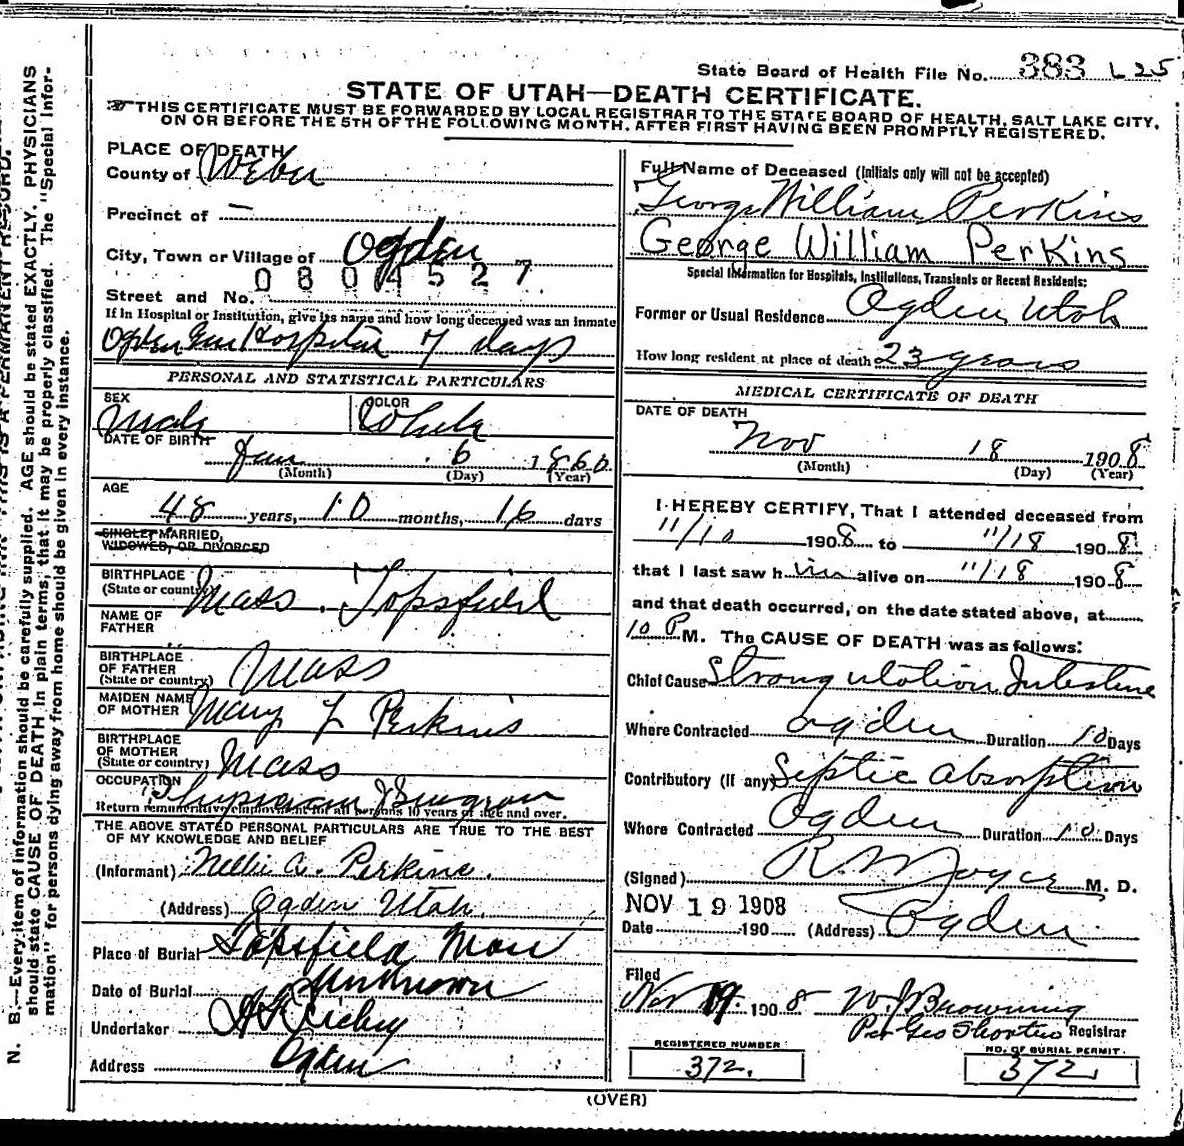 State Board of Health File No. 383 L 25
STATE OF UTAH—DEATH CERTIFICATE.
THIS CERTIFICATE MUST BE FORWARDED BY LOCAL REGISTRAR TO THE STATE BOARD OF HEALTH, SALT LAKE CITY,
ON OR BEFORE THE 5TH OF THE FOLLOWING MONTH, AFTER FIRST HAVING BEEN PROMPTLY REGISTERED.
PLACE OF DEATH
County of Weber
Precinct of —
City, Town or Village of Ogden
0804527
Street and No.
If in Hospital or Institution, give its name and how long deceased was an inmate
Ogden Gen Hospital 7 days
PERSONAL AND STATISTICAL PARTICULARS
SEX Male COLOR White
DATE OF BIRTH Jan 6 1860
(Month) (Day) (Year)
AGE
48 years, 10 months, 16 days
SINGLE, MARRIED,
WIDOWED, OR DIVORCED
BIRTHPLACE
(State or country) Mass. Topsfield
NAME OF
FATHER
BIRTHPLACE
OF FATHER
(State or country) Mass
MAIDEN NAME
OF MOTHER Mary J Perkins
BIRTHPLACE
OF MOTHER
(State or country) Mass
OCCUPATION Physician & Surgeon
Return remunerative employment for all persons 10 years of age and over.
THE ABOVE STATED PERSONAL PARTICULARS ARE TRUE TO THE BEST
OF MY KNOWLEDGE AND BELIEF
(Informant) Nellie A. Perkins.
(Address) Ogden Utah.
Place of Burial Topsfield Mass
Date of Burial Unknown
Undertaker
Address Ogden
Full Name of Deceased (Initials only will not be accepted)
George William Perkins
George William Perkins
Special Information for Hospitals, Institutions, Transients or Recent Residents:
Former or Usual Residence Ogden Utah
How long resident at place of death 23 years
MEDICAL CERTIFICATE OF DEATH
DATE OF DEATH
Nov 18 1908
(Month) (Day) (Year)
I HEREBY CERTIFY, That I attended deceased from
11/10 1908 to 11/18 1908
that I last saw him alive on 11/18 1908
and that death occurred, on the date stated above, at
10 P M. The CAUSE OF DEATH was as follows:
Chief Cause Strangulation Intestine
Where Contracted Ogden Duration 10 Days
Contributory (if any) Septic absorption
Where Contracted Ogden Duration 10 Days
(Signed) M. D.
NOV 19 1908
Date 190 (Address) Ogden
Filed
Nov 19. 1908 W J Browning
Per Geo Shorten Registrar
REGISTERED NUMBER
372.
NO. OF BURIAL PERMIT.
372.
(OVER)
N. B.—Every item of information should be carefully supplied. AGE should be stated EXACTLY. PHYSICIANS
should state CAUSE OF DEATH in plain terms, that it may be properly classified. The "Special Infor-
mation" for persons dying away from home should be given in every instance.